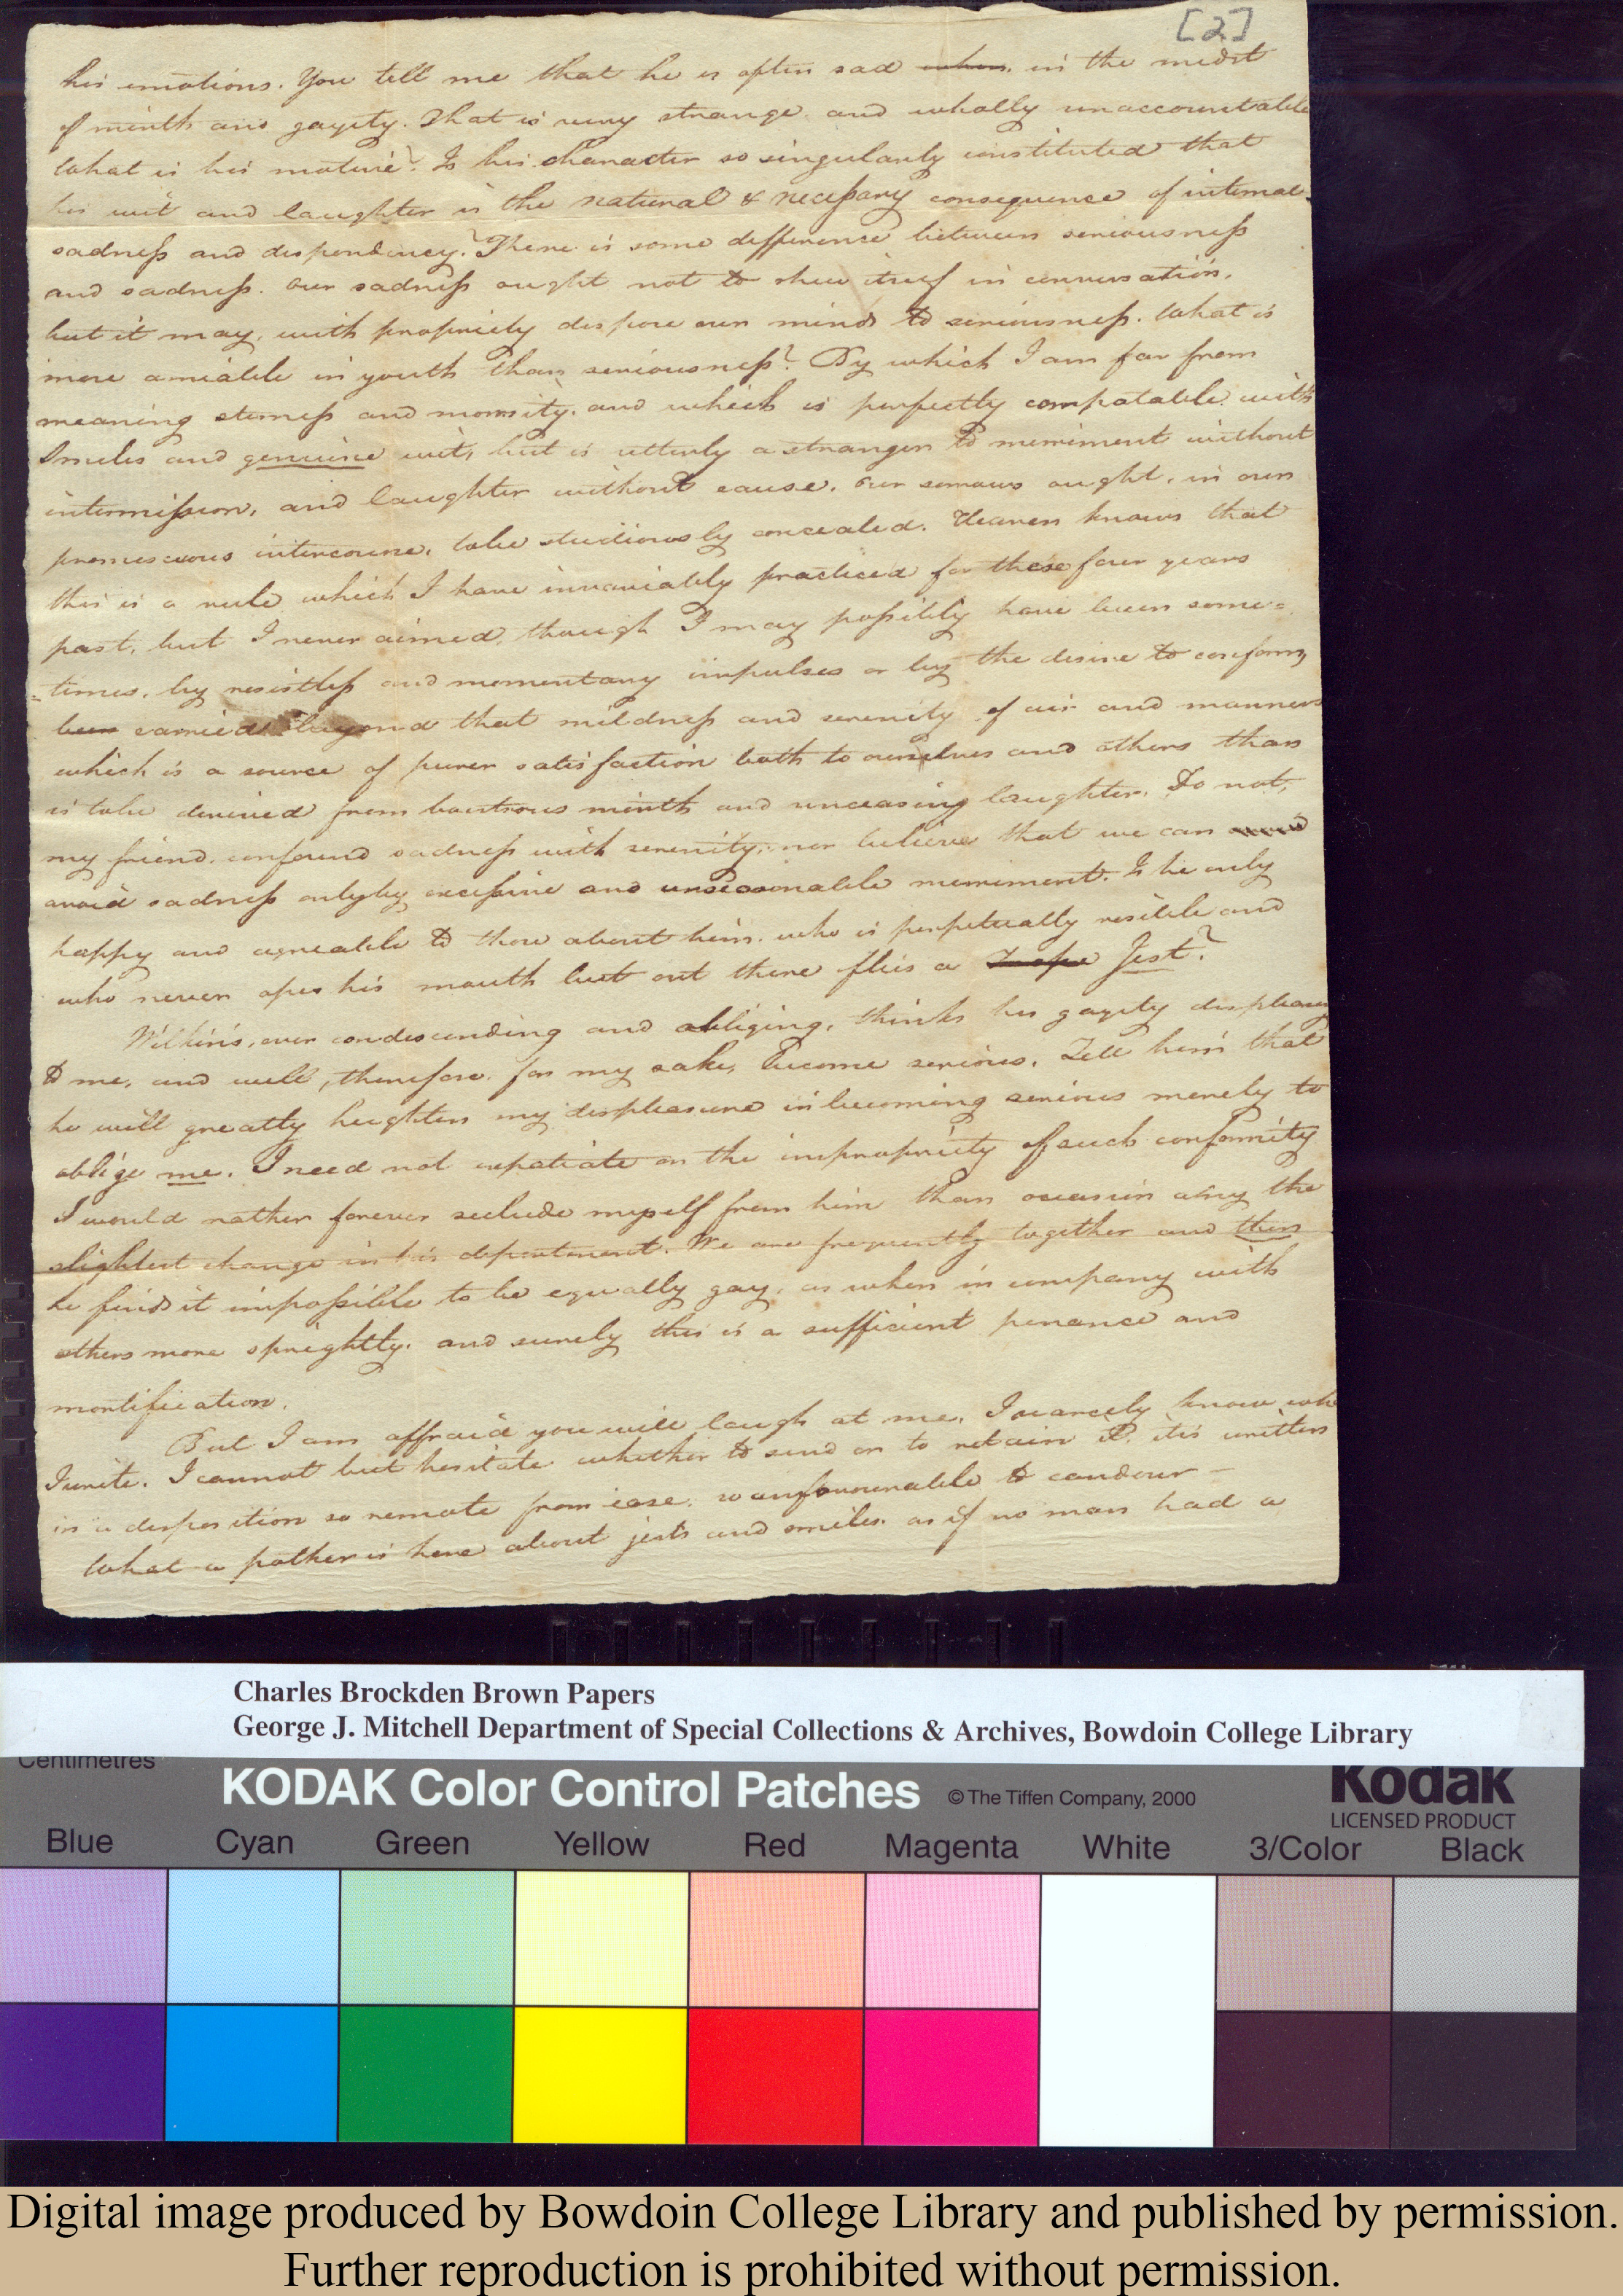 [2]
his emotions. You tell me that he is often sad when in the midst
of mirth and gayety. That is very strange and wholly unaccountable
What is his motive? Is his character so singularly constituted that
his wit and laughter is the natural & necessary consequence of internal
sadness and despondency? There is some difference between seriousness
and sadness. Our sadness ought not to shew itself in conversation,
but it may, with propriety dispose our minds to seriousness. What is
more amiable in youth than seriousness? By which I am far from
meaning sterness and morosity, and which is perfectly compatable with
Smiles and genuine wit, but is utterly a stranger to merriment without
intermission, and laughter without cause. Our sorrows ought, in our
promiscuous intercourse, to be studiously concealed. Heaven knows that
this is a rule which I have invariably practiced for these four years
past, but I never aimed, though I may possibly have been some=
=times, by resistless and momentary impulses or by the desire to conform,
been carried beyond that mildness and serenity of air and manners
which is a source of purer satisfaction both to ourselves and others than
is to be derived from boistrous mirth and unceasing laughter. Do not,
my friend, confound sadness with serenity, nor believe that we can
avoid sadness only by excessive and unseasonable merriment. Is he only
happy and agreeable to those about him, who is perpetually risible and
who never opes his mouth but out there flies a Trope Jest?
Wilkins, ever condescending and obliging, thinks his gayety displeasing
to me, and will, therefore, for my sake, become serious. Tell him that
he will greatly heighten my displeasure in becoming serious merely to
oblige me. I need not expatiate on the impropriety of such conformity
I would rather forever seclude myself from him than occasion any the
slightest change in his deportment. We are frequently together and then
he finds it impossible to be equally gay, as when in company with
others more sprightly. and surely this is a sufficient penance and
mortification.
But I am affraid you will laugh at me, I scarcely know wh
I write. I cannot but hesitate whether to send or to retain it. it is written
in a disposition so remote from ease, so unfavourable to candour—
What a pother is here about jests and smiles, as if no man had a
Charles Brockden Brown Papers
George J. Mitchell Department of Special Collections & Archives, Bowdoin College Library
Centimetres
KODAK Color Control Patches © The Tiffen Company, 2000
Kodak
LICENSED PRODUCT
Blue Cyan Green Yellow Red Magenta White 3/Color Black
Digital image produced by Bowdoin College Library and published by permission.
Further reproduction is prohibited without permission.